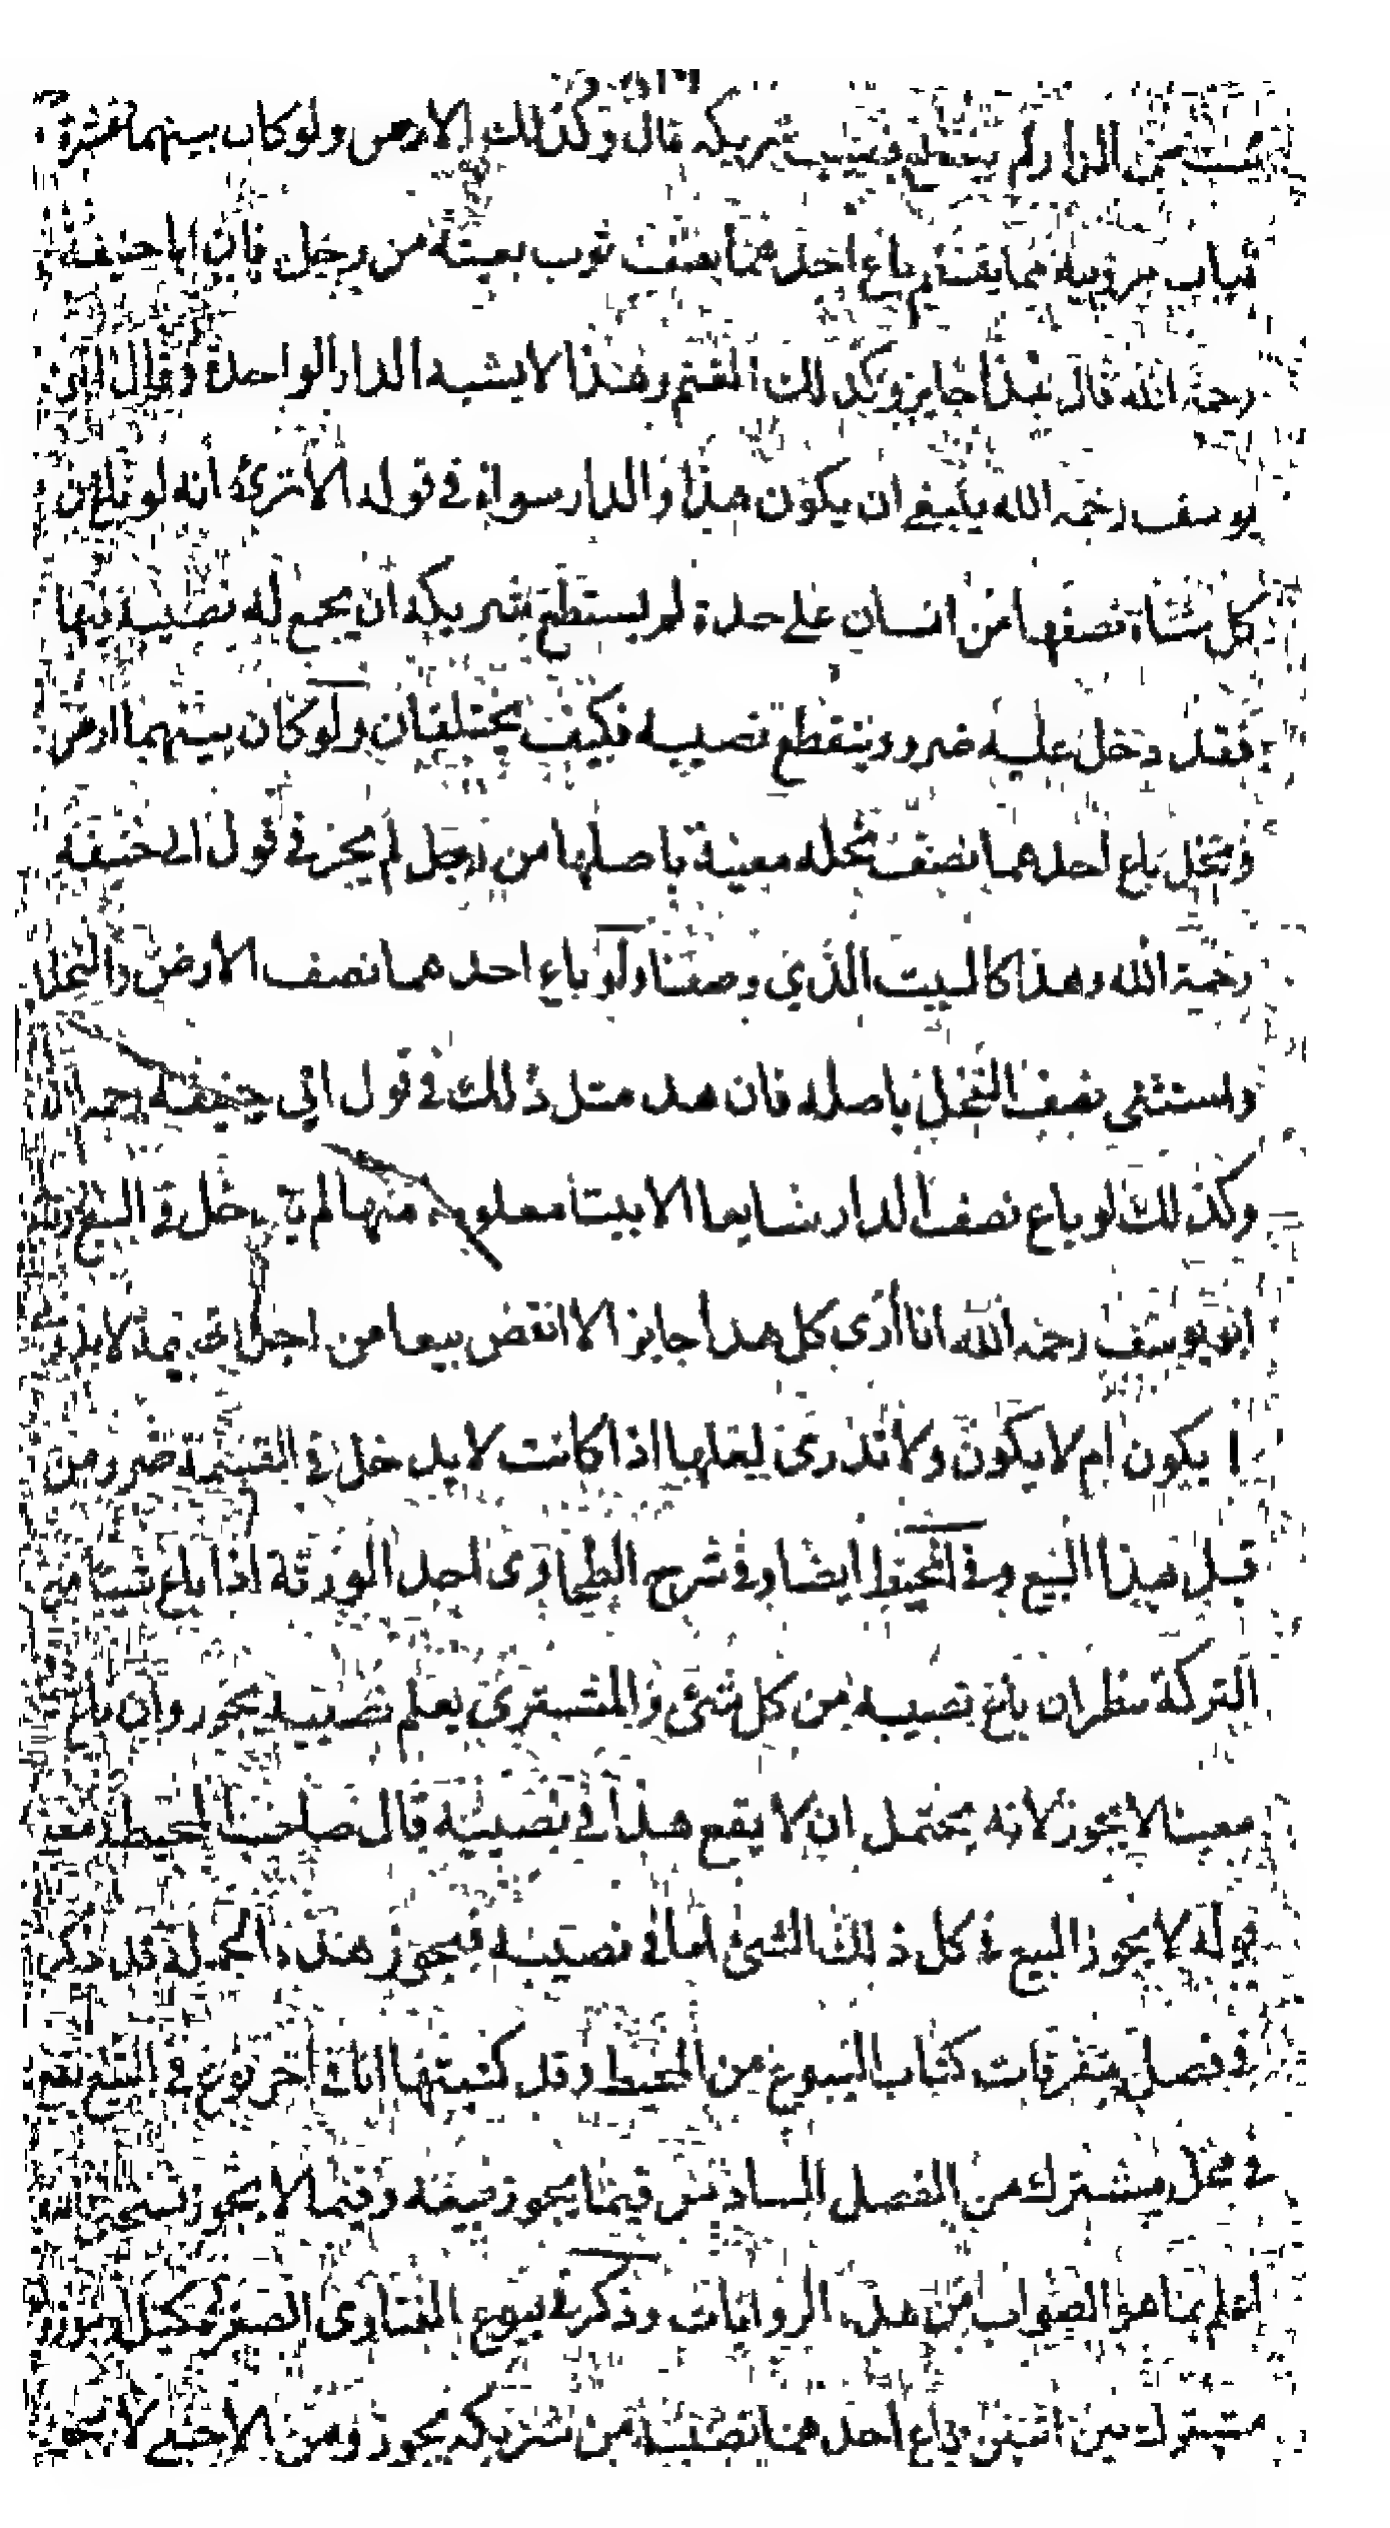 من الدار لم يستطع نصيب شريكه قال وكذلك الارض ولو كان بينهما عشرة
ثياب هروية مما يقسم باع احدهما نصف ثوب بعينه من رجل فان ابا حنيفة
رحمة الله قال هذا جايز وكذلك الغنم وهذا لا يشبه الدار الواحدة وقال ابي
يوسف رحمه الله ينبغي ان يكون هذا والدار سواء في قوله الا ترى انه لو باع من
كل شاة نصفها من انسان على حدة لم يستطع شريكه ان يجمع له نصيبه فيها
فقد دخل عليه ضرر وينقطع نصيبه فكيف يختلفان ولو كان بينهما ارض
ونخل باع احدهما نصف نخله معينة باصلها من رجل لم يجز في قول ابي حنيفة
رحمة الله وهذا كالبيت الذي وصفنا ولو باع احدهما نصف الارض والنخل
واستثنى نصف النخل باصله فان هذ مثل ذلك في قول ابي حنيفة رحمه الله
وكذلك لو باع نصف الدار شايعا الا بيتا معلوما منها لم يدخل في البيع
ابو يوسف رحمه الله انا أرى كل هذا جايز الا انقض بيعا من اجل انه لا يدرى
يكون ام لا يكون ولا تدرى لعلها اذا كانت لا يدخل في القسمة ضرر من
قبل هذا البيع وفي المحيط ايضا وفي شرح الطحاوى احد الورثة اذا باع شيئا من
التركة ينظر ان باع نصيبه من كل شئ والمشترى يعلم نصيبه يجوز وان باع
معينا لا يجوز لانه يحتمل ان لا يقع هذا في نصيبه قال صاحب المحيط معنى
قوله لا يجوز البيع في كل ذلك الشئ اما في نصيبه فيجوز هذه الجملة قد ذكر
في فصل متفرقات كتاب البيوع من المحيط وقد كتبتها انا في اخر نوع في البيع يقع
في محل مشترك من الفصل السادس فيما يجوز بيعه وفيما لا يجوز
اعلم بما هو الصواب من هذه الروايات وذكر في بيوع الفتاوى الصغرى مكيل او موزون
مشترك بين اثنين باع احدهما نصيبه من شريكه يجوز ومن الاجنبي لا يجوز